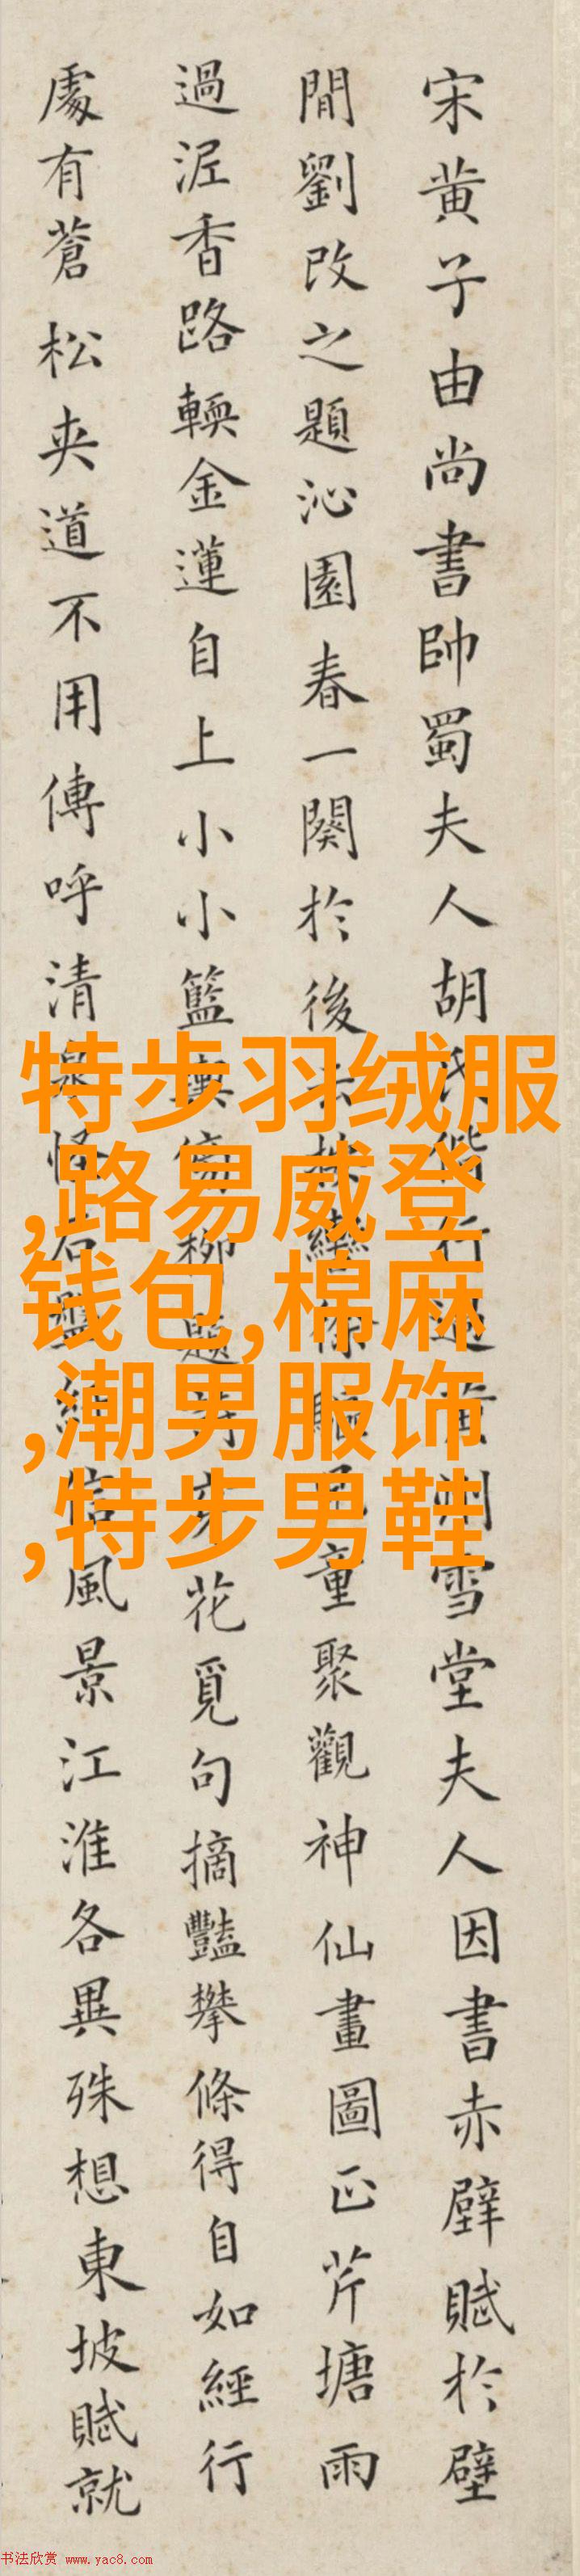 宋黄子由尚書帥蜀夫人胡氏偕行過黄州雪堂夫人因書赤壁賦於壁
間劉改之題沁園春一闋於後云按轡徐驅兒童聚觀神仙畫圖正芹塘雨
過泥香路輭金蓮自上小小籃輿傍柳題詩穿花覓句摘豔攀條得自如經行
處有蒼松夾道不用傳呼清泉怪石盤紆信風景江淮各異殊想東坡賦就
特步羽绒服
,路易威登
钱包,棉麻
,潮男服饰
,特步男鞋
书法欣赏 www.yac8.com